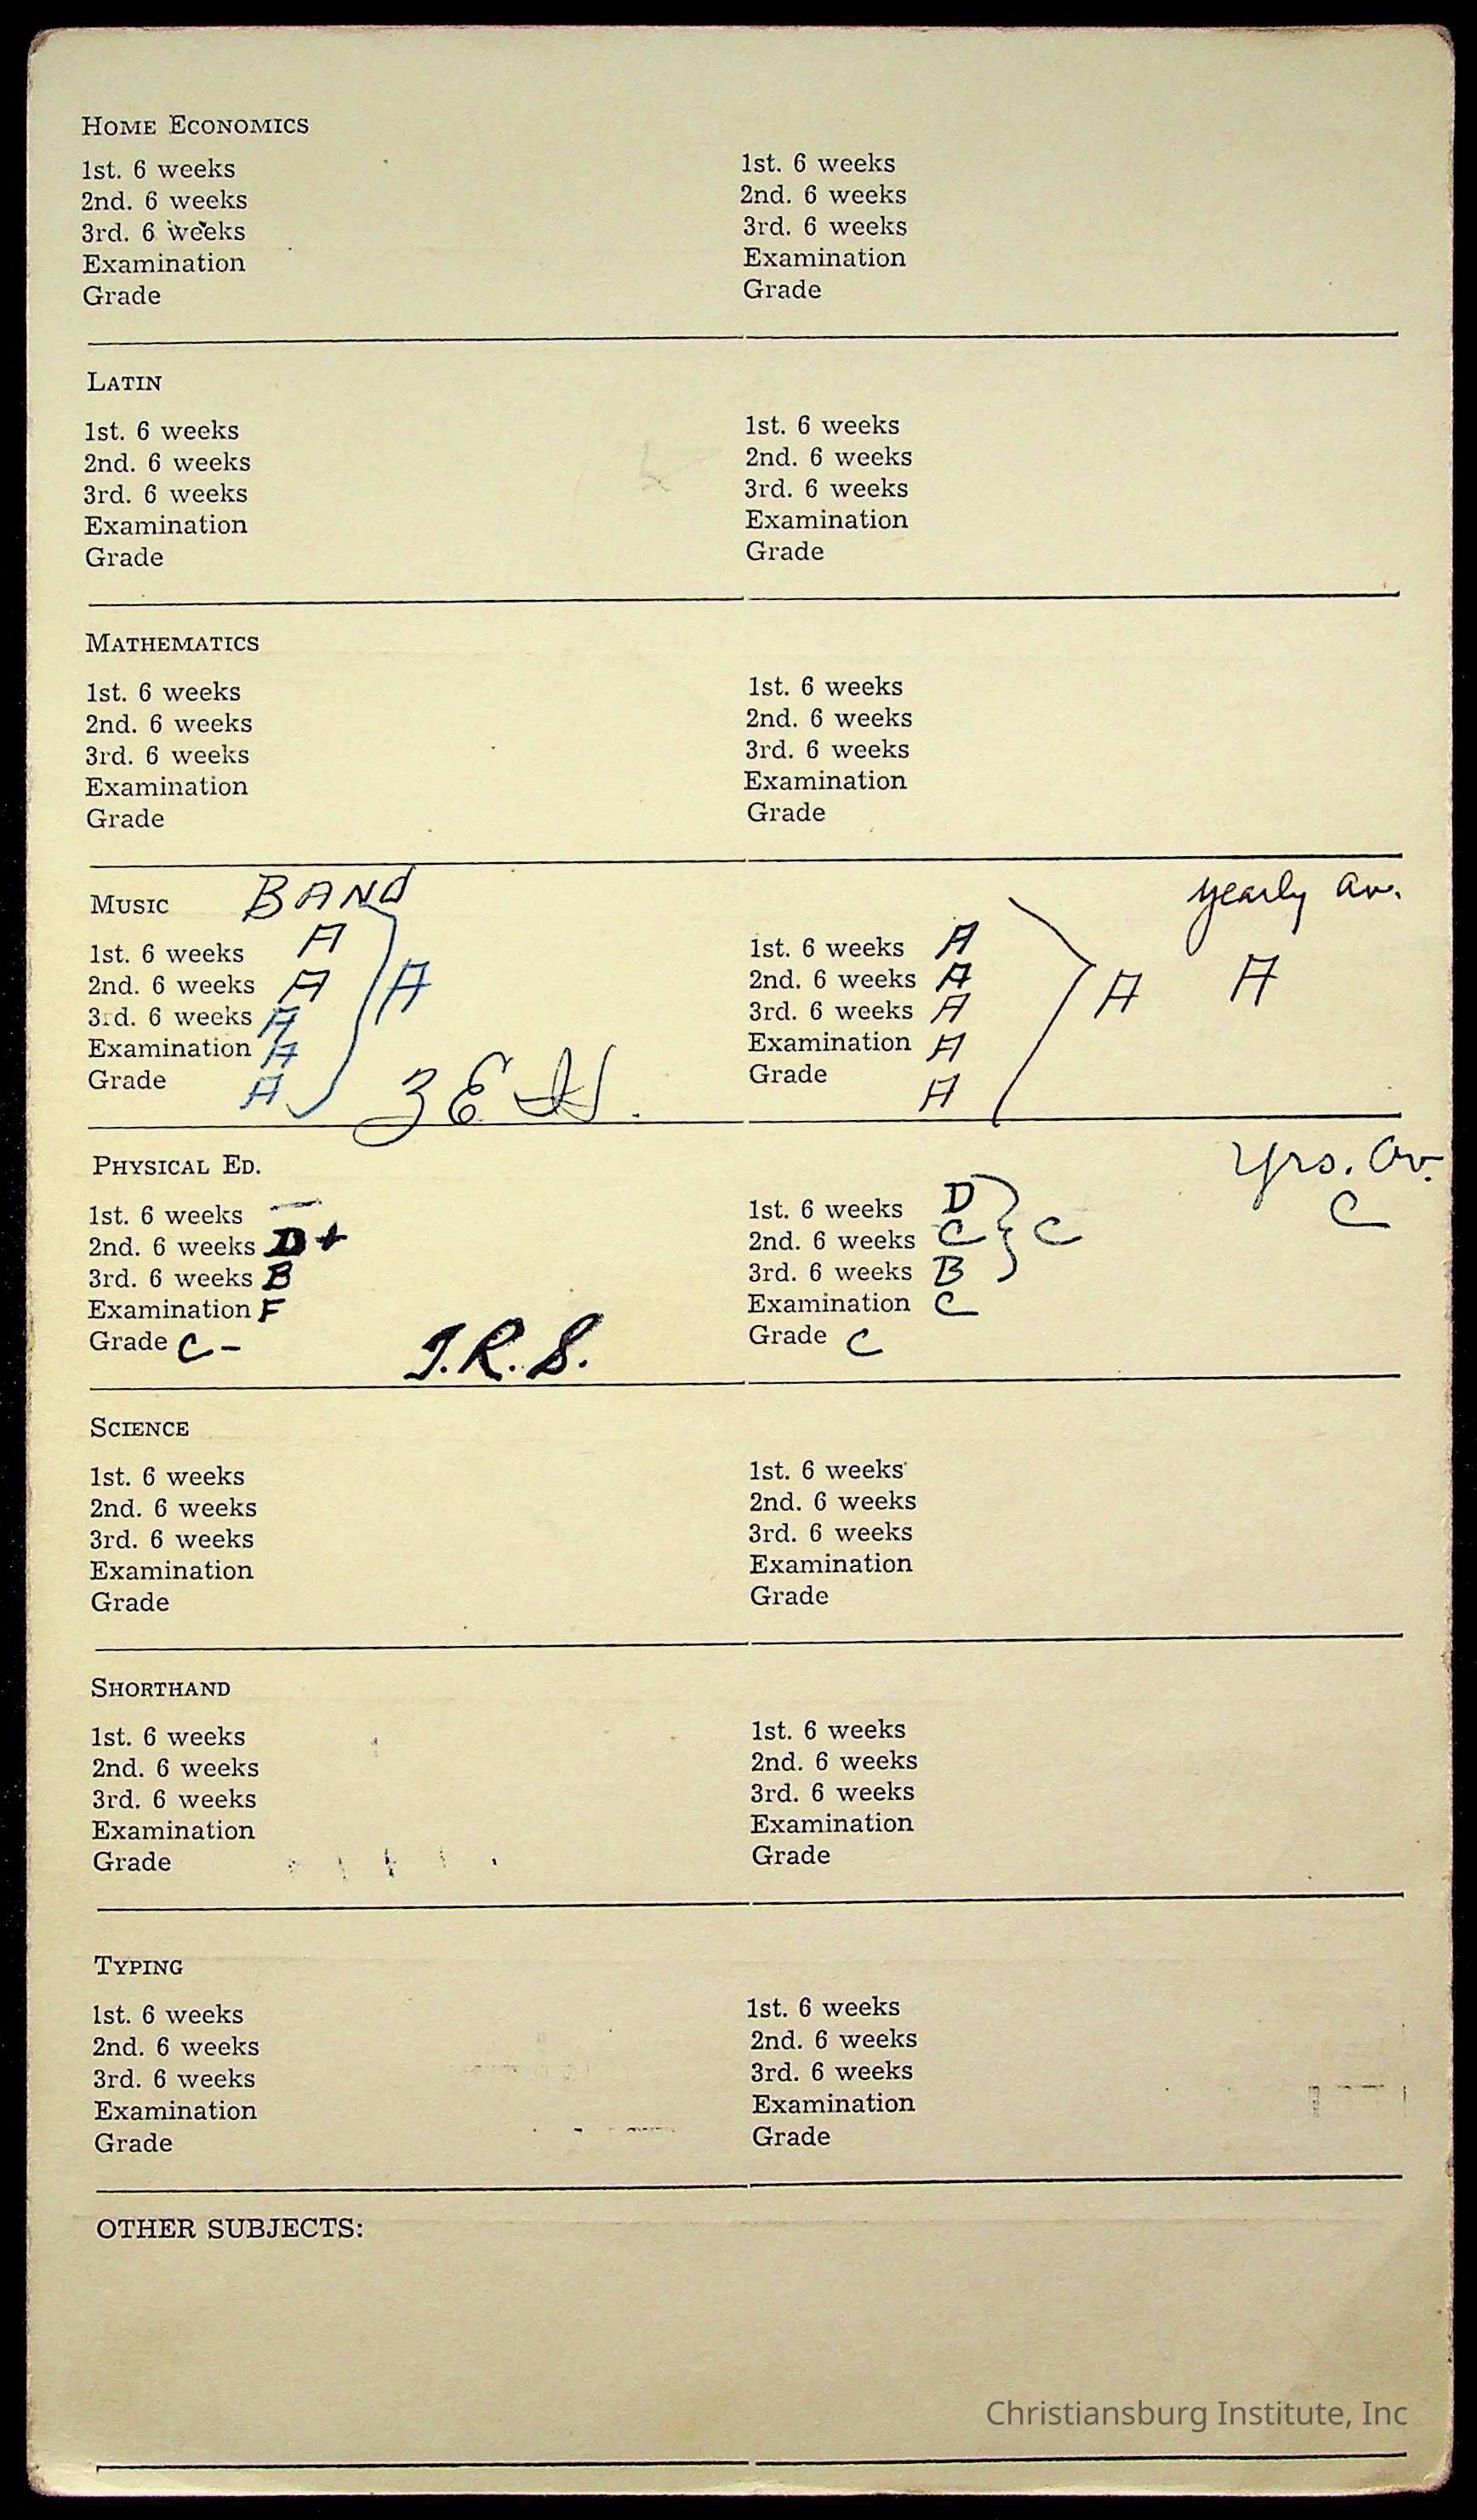 HOME ECONOMICS
1st. 6 weeks
2nd. 6 weeks
3rd. 6 weeks
Examination
Grade
1st. 6 weeks
2nd. 6 weeks
3rd. 6 weeks
Examination
Grade
LATIN
1st. 6 weeks
2nd. 6 weeks
3rd. 6 weeks
Examination
Grade
1st. 6 weeks
2nd. 6 weeks
3rd. 6 weeks
Examination
Grade
MATHEMATICS
1st. 6 weeks
2nd. 6 weeks
3rd. 6 weeks
Examination
Grade
1st. 6 weeks
2nd. 6 weeks
3rd. 6 weeks
Examination
Grade
MUSIC BAND
1st. 6 weeks A
2nd. 6 weeks A A
3rd. 6 weeks A
Examination A
Grade A
yearly av.
1st. 6 weeks A
2nd. 6 weeks A A A
3rd. 6 weeks A
Examination A
Grade A
PHYSICAL ED.
1st. 6 weeks —
2nd. 6 weeks D+
3rd. 6 weeks B
Examination F
Grade C-
Yrs. Av.
C
1st. 6 weeks D
2nd. 6 weeks C C
3rd. 6 weeks B
Examination C
Grade C
SCIENCE
1st. 6 weeks
2nd. 6 weeks
3rd. 6 weeks
Examination
Grade
1st. 6 weeks
2nd. 6 weeks
3rd. 6 weeks
Examination
Grade
SHORTHAND
1st. 6 weeks
2nd. 6 weeks
3rd. 6 weeks
Examination
Grade
1st. 6 weeks
2nd. 6 weeks
3rd. 6 weeks
Examination
Grade
TYPING
1st. 6 weeks
2nd. 6 weeks
3rd. 6 weeks
Examination
Grade
1st. 6 weeks
2nd. 6 weeks
3rd. 6 weeks
Examination
Grade
OTHER SUBJECTS:
Christiansburg Institute, Inc